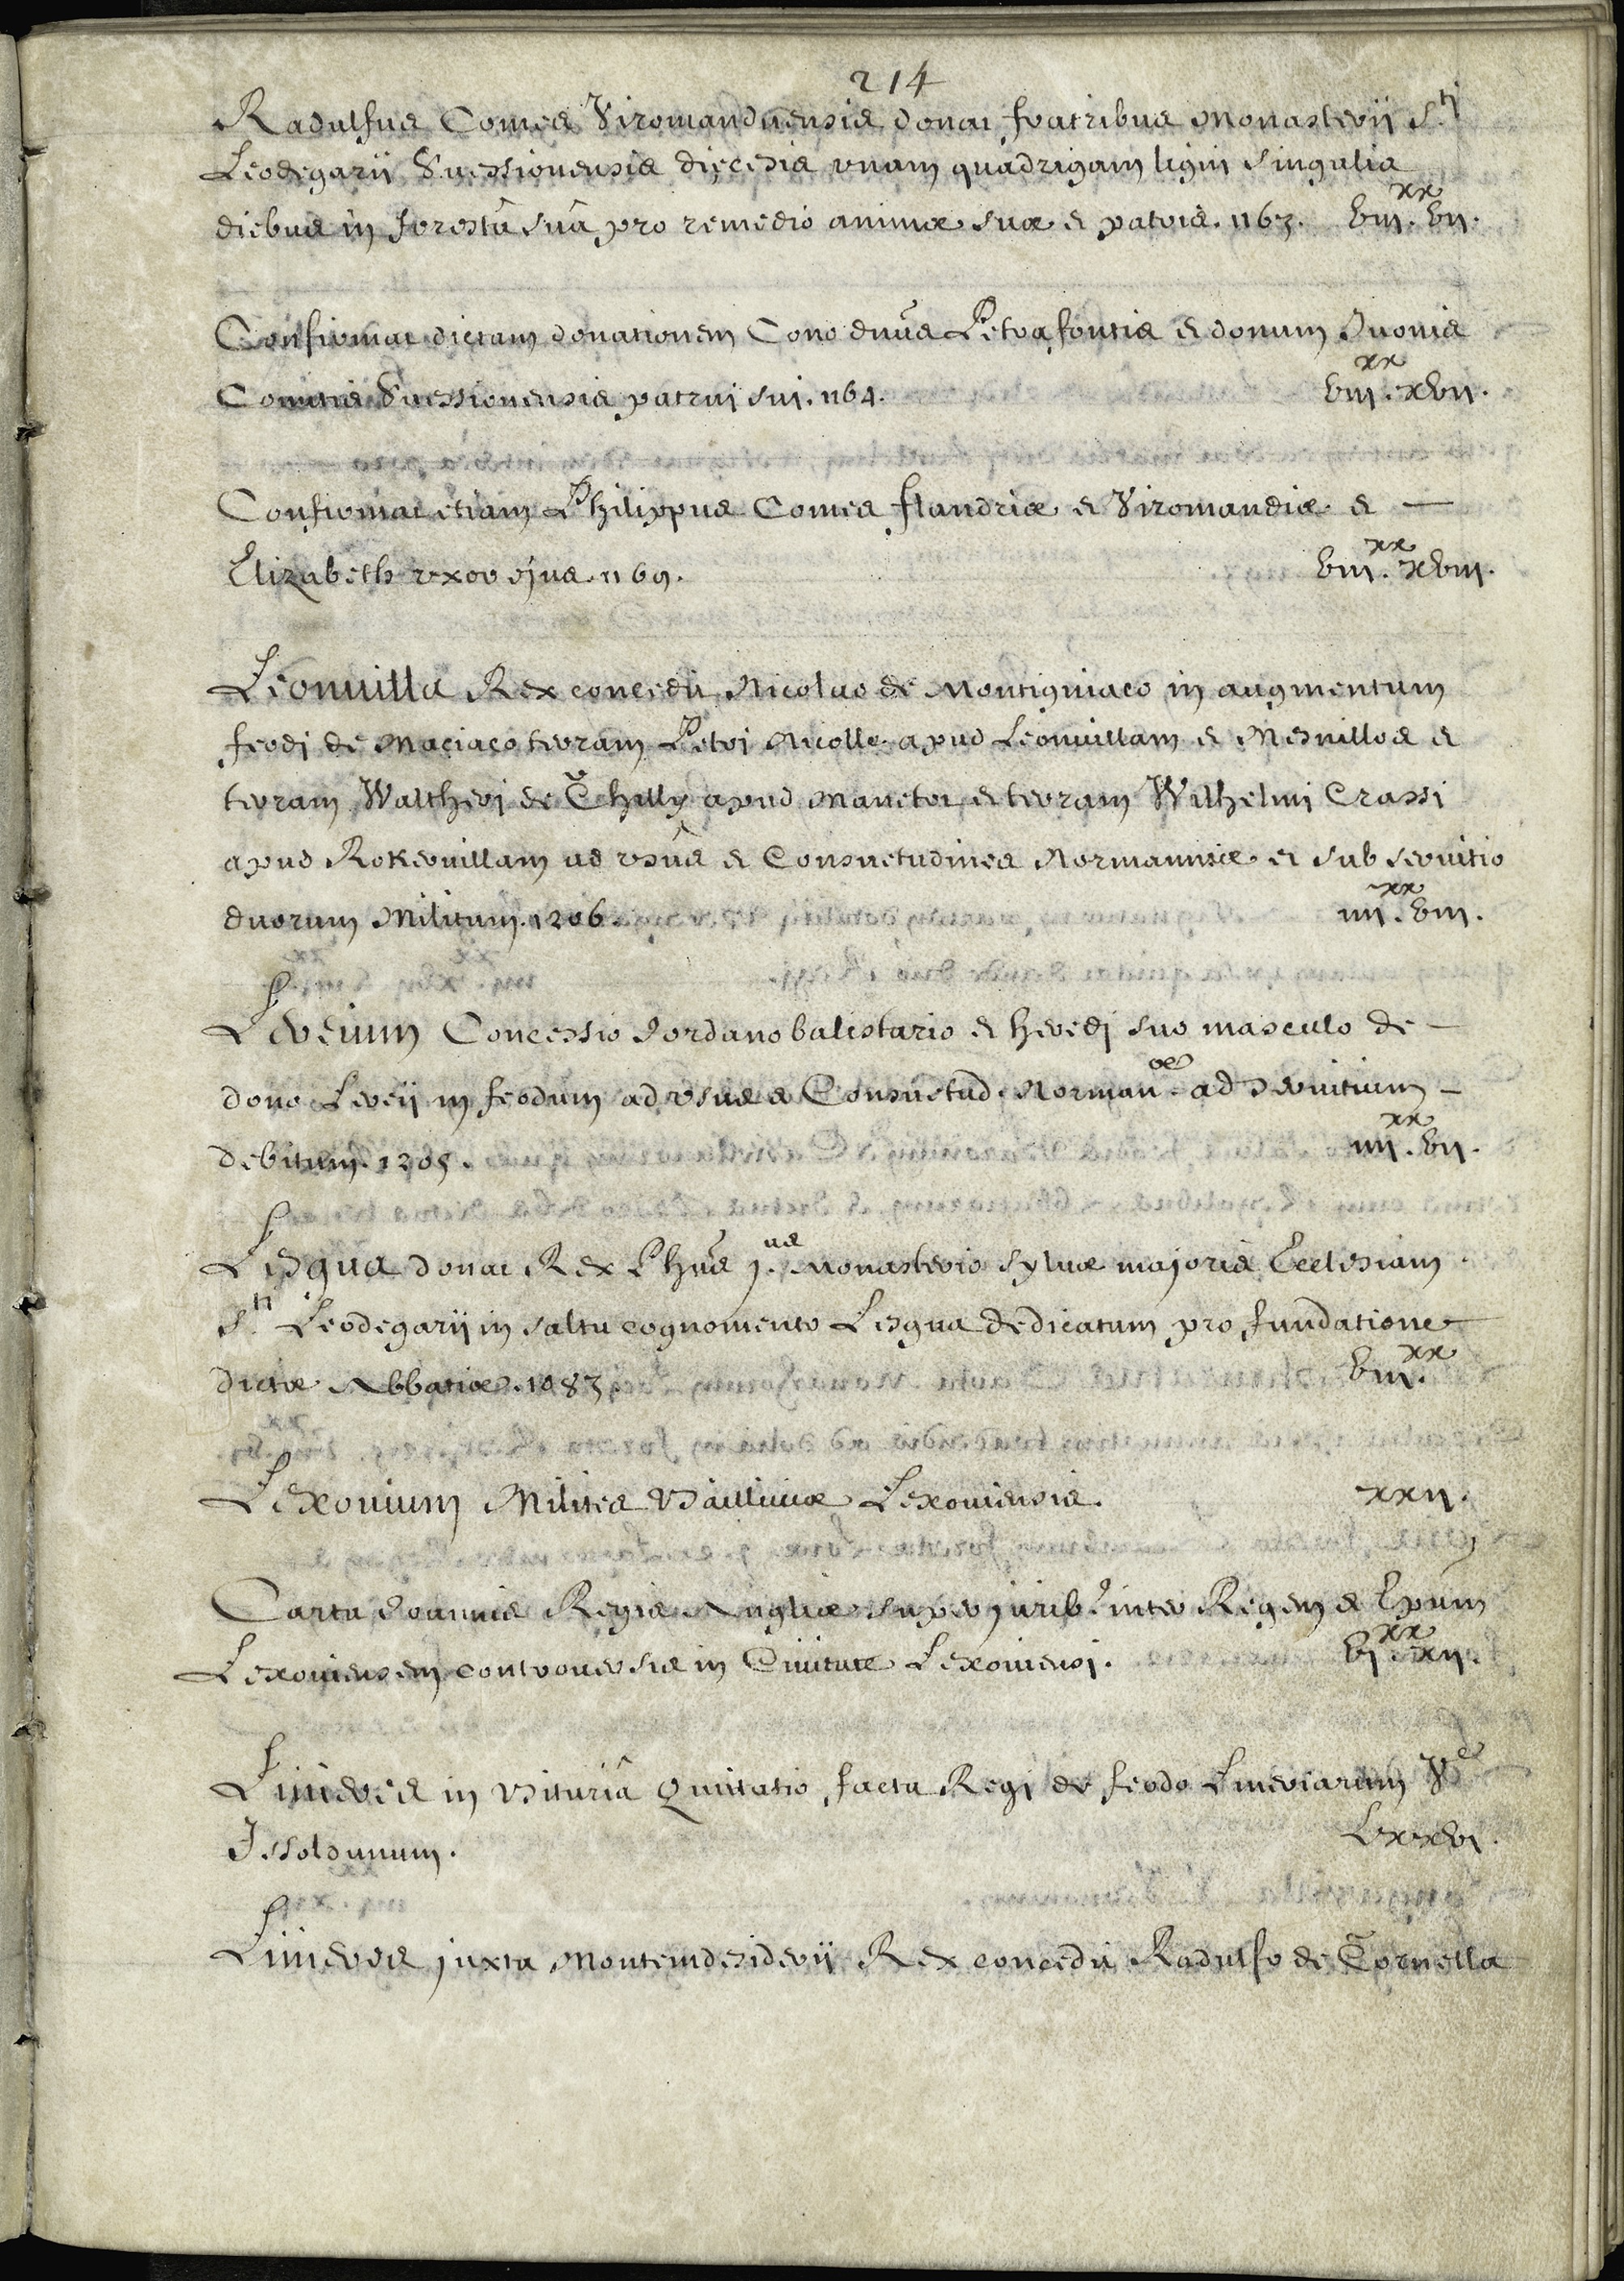 214
Radulfus Comes Viromanduensis donat fratribus Monasterij S.ti
Leodegarij Suessionensis diẹcesis vnam quadrigam ligni singulis
diebus in forestâ suâ pro remedio animæ suæ et patris. 1163. viij.xx vij.
Confirmat dictam donationem Cono dnũs Petræfontis et donum Iuonis
Comitis Suessionensis patrui sui. 1164. viij.xx xvij.
Confirmat etiam Philippus Comes flandriæ et Viromandiæ et —
Elizabeth vxor ejus. 1169. viij.xx xviij.
Leonuilla Rex concedit Nicolao de Montigniaco in augmentum
feodi de Maciaco terram Petri Nicolle apud Leonuillam et Mesnillos et
terram Waltheri de Chilly apud Manetot et terram Wilhelmi Crassi
apud Rokeruillam ad vsûs et Consuetudines Normanniæ et sub seruitio
duorum Militum. 1206. iiij.xx viij.
Lereium Concessio Jordano balistario et heredj suo masculo de —
dono Lereij in feodum ad vsus et Consuetud. Normanæ ad seruitium —
debitum. 1205. iiij.xx vij.
Lesgua donat Rex Phũs j.us Monasterio syluæ majoris Ecclesiam
S.ti Leodegarij in saltu cognomento Lesgua dedicatum pro fundatione
dictæ Abbatiæ. 1083 viij.xx
Lexouium Milites Bailliuiæ Lexouiensis. xxij.
Carta Joannis Regis Angliæ super jurib9 inter Regem et Epũm
Lexouiensem controuersis in Ciuitate Lexouiensi. vj.xx xij.
Lineres in Bituriâ Quittatio facta Regi de feodo Lineriarum Ve
Issoldunum. Lxxvi.
Lineres juxta Montemdesiderij Rex concedit Radulfo de Tornella